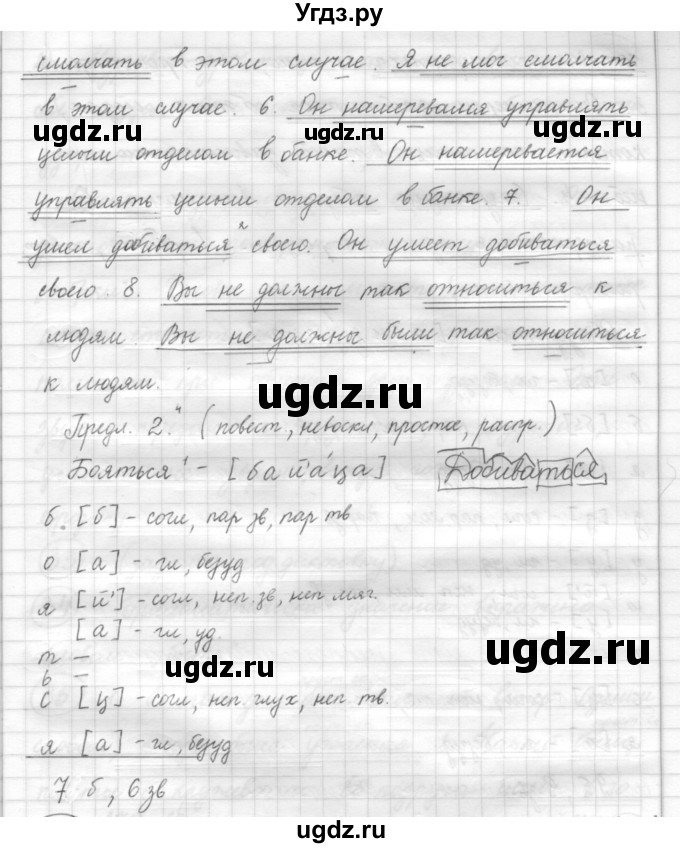 Угдз.ру
смолчать в этом случае. Я не мог смолчать
в этом случае. 6. Он намеревался управлять
целым отделом в банке. Он намеревается
управлять целым отделом в банке. 7. Он
умел добиваться⁴ своего. Он умеет добиваться
своего. 8. Вы не должны так относиться к
людям Вы не должны были так относиться
к людям.
Предл. 2.⁴ (повест, невоскл, простое, распр.)
Бояться¹ - [байа́ца] Добиваться
б. [б] - согл, пар зв, пар тв
о [а] - гл, безуд
я [й'] - согл, неп. зв, неп мяг.
[а] - гл, уд.
т —
ь —
с [ц] - согл, неп глух, неп тв.
я [а] - гл, безуд
7 б, 6 зв
ugdz.ru ugdz.ru
ugdz.ru ugdz.ru
ugdz.ru
ugdz.ru ugdz.ru
ugdz.ru ugdz.ru
ugdz.ru